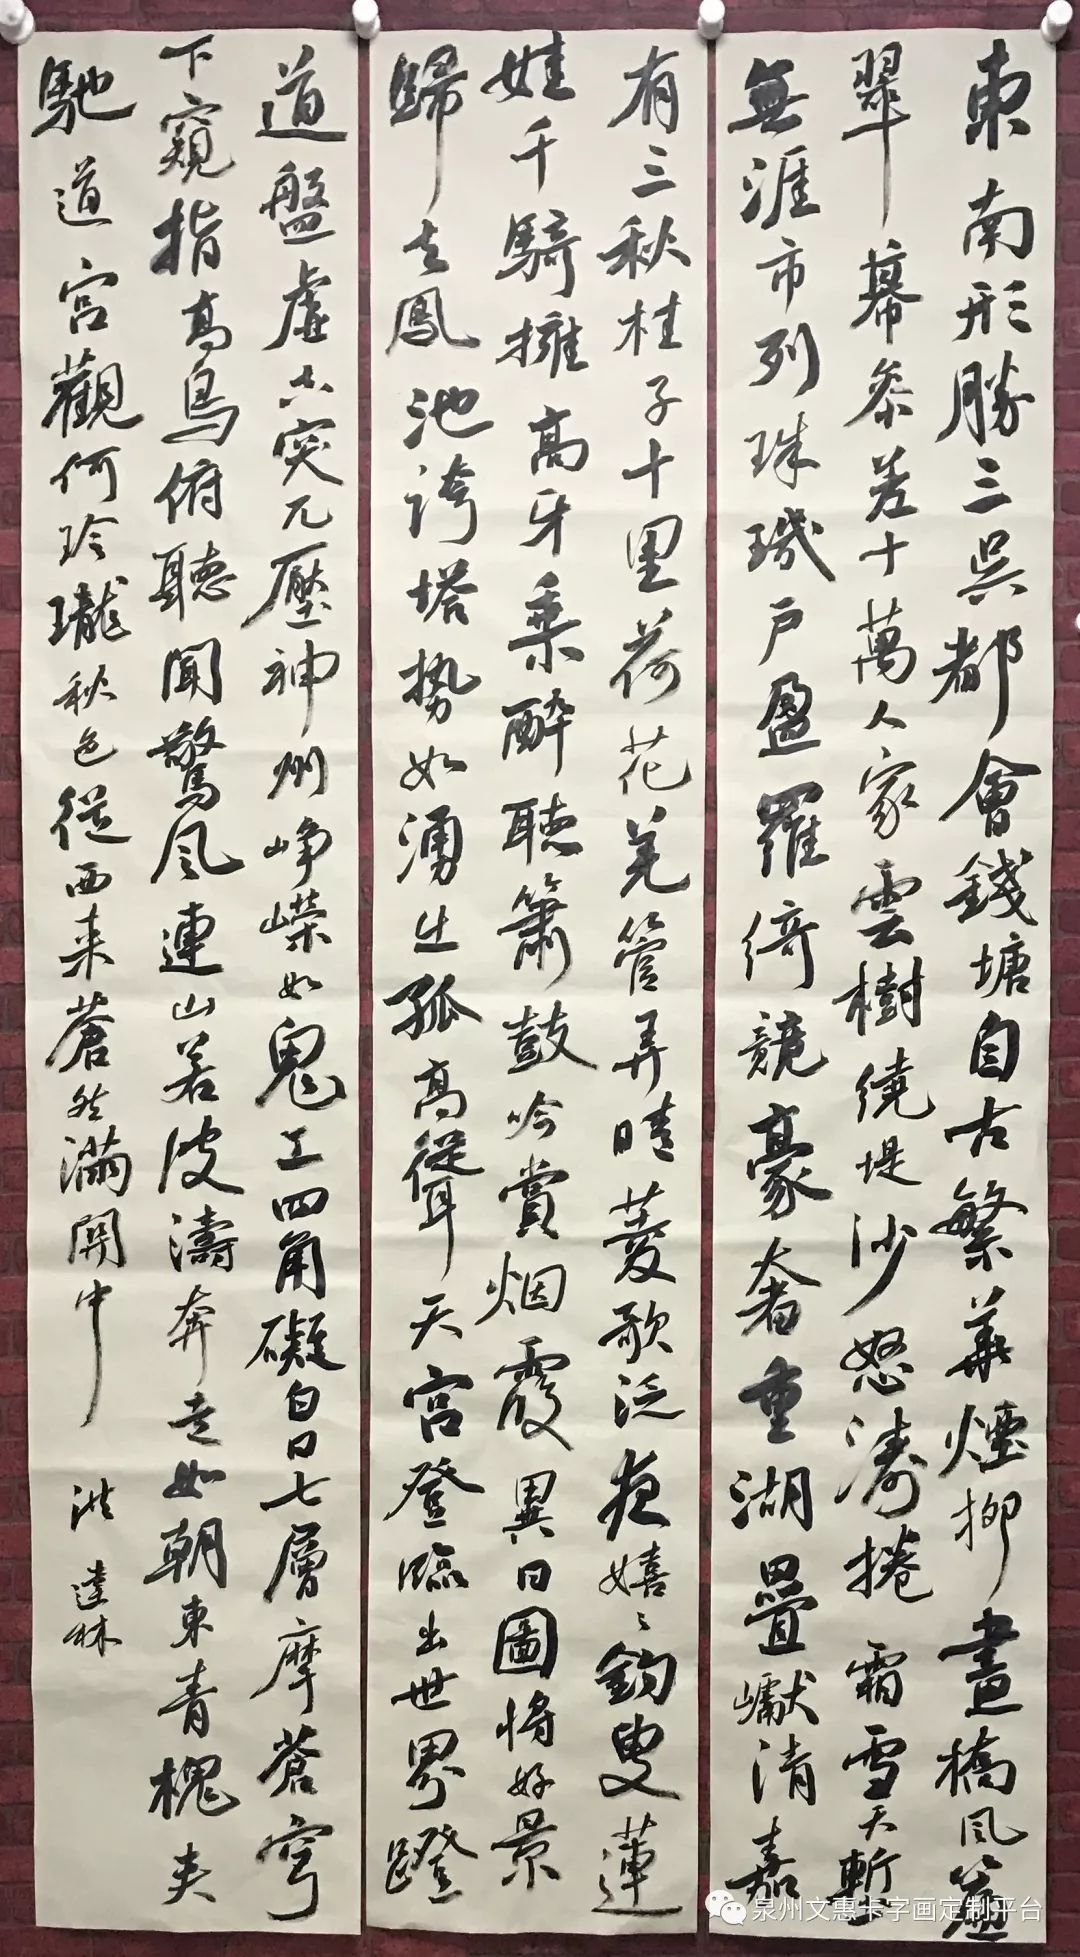 東南形勝三吳都會錢塘自古繁華煙柳畫橋風簾
翠幕參差十萬人家雲樹繞堤沙怒濤捲霜雪天塹
無涯市列珠璣戶盈羅綺競豪奢重湖疊巘清嘉
有三秋桂子十里荷花羌管弄晴菱歌泛夜嬉嬉釣叟蓮
娃千騎擁高牙乘醉聽簫鼓吟賞烟霞異日圖將好景
歸去鳳池誇塔勢如湧出孤高聳天宮登臨出世界蹬
道盤虛空突兀壓神州崢嶸如鬼工四角礙白日七層摩蒼穹
下窺指高鳥俯聽聞驚風連山若波濤奔走如朝東青槐夾
馳道宮觀何玲瓏秋色從西来蒼然滿關中
洪達林
泉州文惠卡字画定制平台